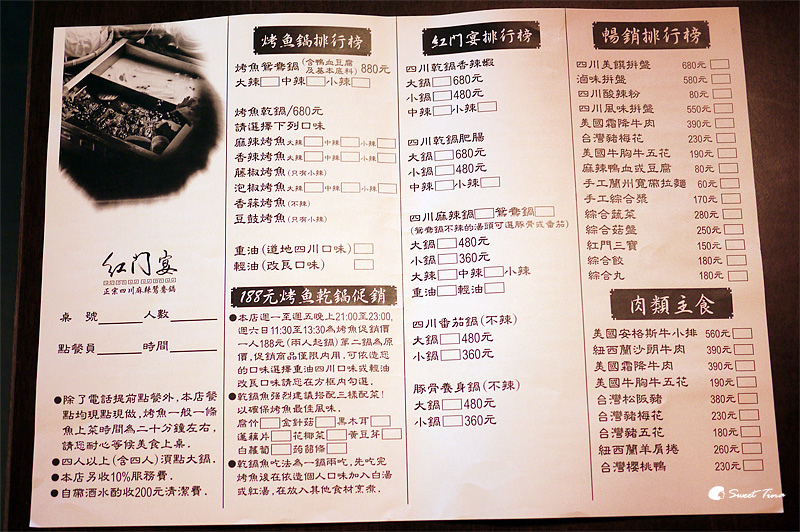 紅門宴
正宗四川麻辣鴛鴦鍋
桌 號 人數
點餐員 時間
●除了電話提前點餐外，本店餐
點均現點現做，烤魚一般一條
魚上菜時間為二十分鐘左右，
請您耐心等候美食上桌．
●四人以上(含四人)須點大鍋．
●本店另收10%服務費．
●自帶酒水酌收200元清潔費．
烤魚鍋排行榜
烤魚鴛鴦鍋(含鴨血豆腐及基本底料) 880元
大辣 中辣 小辣
烤魚乾鍋/680元
請選擇下列口味
麻辣烤魚 大辣 中辣 小辣
香辣烤魚 大辣 中辣 小辣
藤椒烤魚(只有小辣)
泡椒烤魚 大辣 中辣 小辣
香蒜烤魚(不辣)
豆鼓烤魚(只有小辣)
重油(道地四川口味)
輕油(改良口味)
188元烤魚乾鍋促銷
●本店週一至週五晚上21:00至23:00,
週六日11:30至13:30為烤魚促銷價
一人188元(兩人起鍋)第二鍋為原
價,促銷商品僅限內用,可依造您
的口味選擇重油四川口味或輕油
改良口味請您在方框內勾選.
●乾鍋魚強烈建議搭配三樣配菜!
以確保烤魚最佳風味.
腐竹 金針菇 黑木耳
蓮藕片 花椰菜 黃豆芽
白蘿蔔 蒟蒻條
●乾鍋魚吃法為一鍋兩吃,先吃完
烤魚後在依造個人口味加入白湯
或紅湯,在放入其他食材烹煮.
紅門宴排行榜
四川乾鍋香辣蝦
大鍋 680元
小鍋 480元
中辣 小辣
四川乾鍋肥腸
大鍋 680元
小鍋 480元
中辣 小辣
四川麻辣鍋 鴛鴦鍋
(鴛鴦鍋不辣的湯頭可選豚骨或番茄)
大鍋 480元
小鍋 360元
大辣 中辣 小辣
重油 輕油
四川番茄鍋(不辣)
大鍋 480元
小鍋 360元
豚骨養身鍋(不辣)
大鍋 480元
小鍋 360元
暢銷排行榜
四川美饌拼盤 680元
滷味拼盤 580元
四川酸辣粉 80元
四川風味拼盤 550元
美國霜降牛肉 390元
台灣豬梅花 230元
美國牛胸牛五花 190元
麻辣鴨血或豆腐 80元
手工蘭州寬帶拉麵 60元
手工綜合漿 170元
綜合蔬菜 280元
綜合菇盤 250元
紅門三寶 150元
綜合餃 180元
綜合丸 180元
肉類主食
美國安格斯牛小排 560元
紐西蘭沙朗牛肉 390元
美國霜降牛肉 390元
美國牛胸牛五花 190元
台灣松阪豬 380元
台灣豬梅花 230元
台灣豬五花 180元
紐西蘭羊肩捲 260元
台灣櫻桃鴨 230元
Sweet Tina